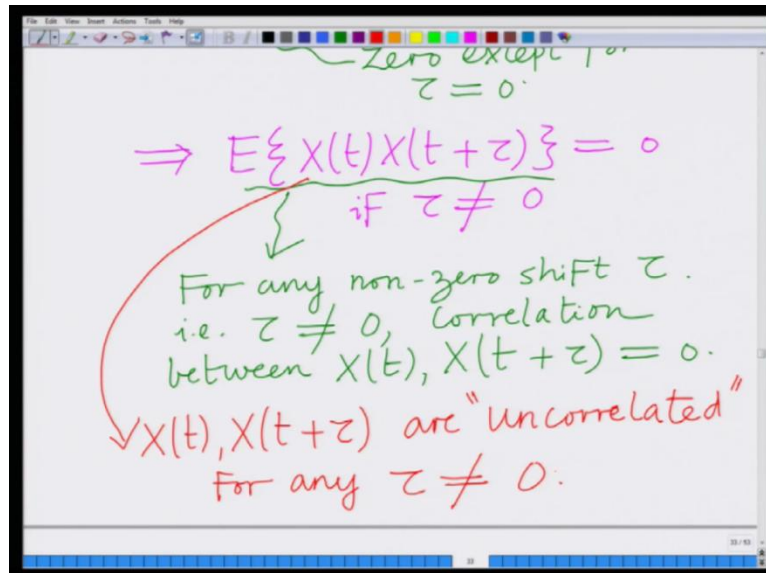 File Edit View Insert Actions Tools Help
B I
Zero except for
τ = 0.
⇒ E{X(t)X(t + τ)} = 0
if τ ≠ 0
For any non-zero shift τ.
i.e. τ ≠ 0, correlation
between X(t), X(t + τ) = 0.
X(t), X(t + τ) are "uncorrelated"
For any τ ≠ 0.
33 / 93
33